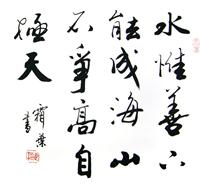 水惟善下
能成海山
不爭高自
極天
霜葉書